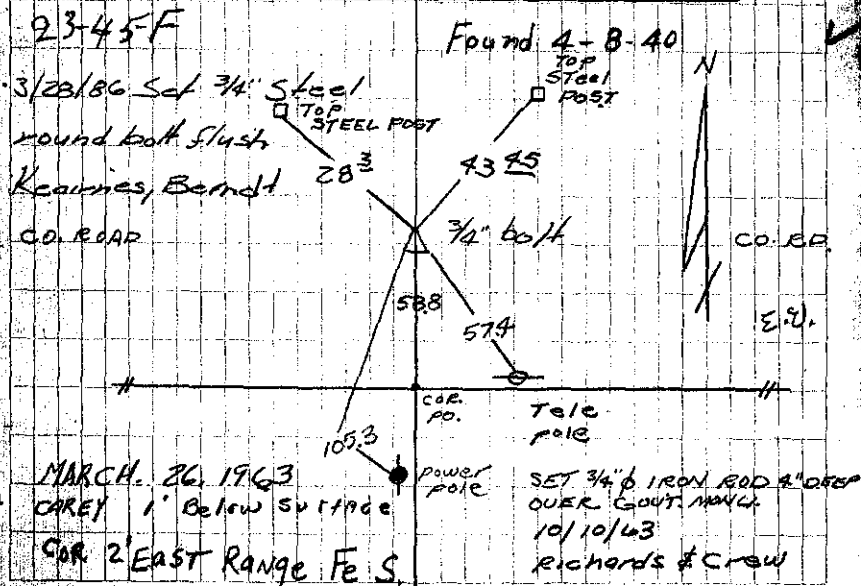 23-45-F
Found 4-8-40
3/28/86 Set 3/4" Steel
round bolt flush
Kearnies, Berndt
CO. ROAD
TOP
STEEL POST
TOP
STEEL
POST
N
28 3
43 45
3/4" bolt
CO. RD.
E.W.
58.8
57.4
COR.
PO.
Tele
pole
105.3
power
pole
MARCH. 26, 1963
CAREY 1' Below Surface
COR 2' EAST RANGE Fe S.
SET 3/4" ø IRON ROD 4" DEEP
OVER GOUT. MONU.
10/10/63
Richards & Crew